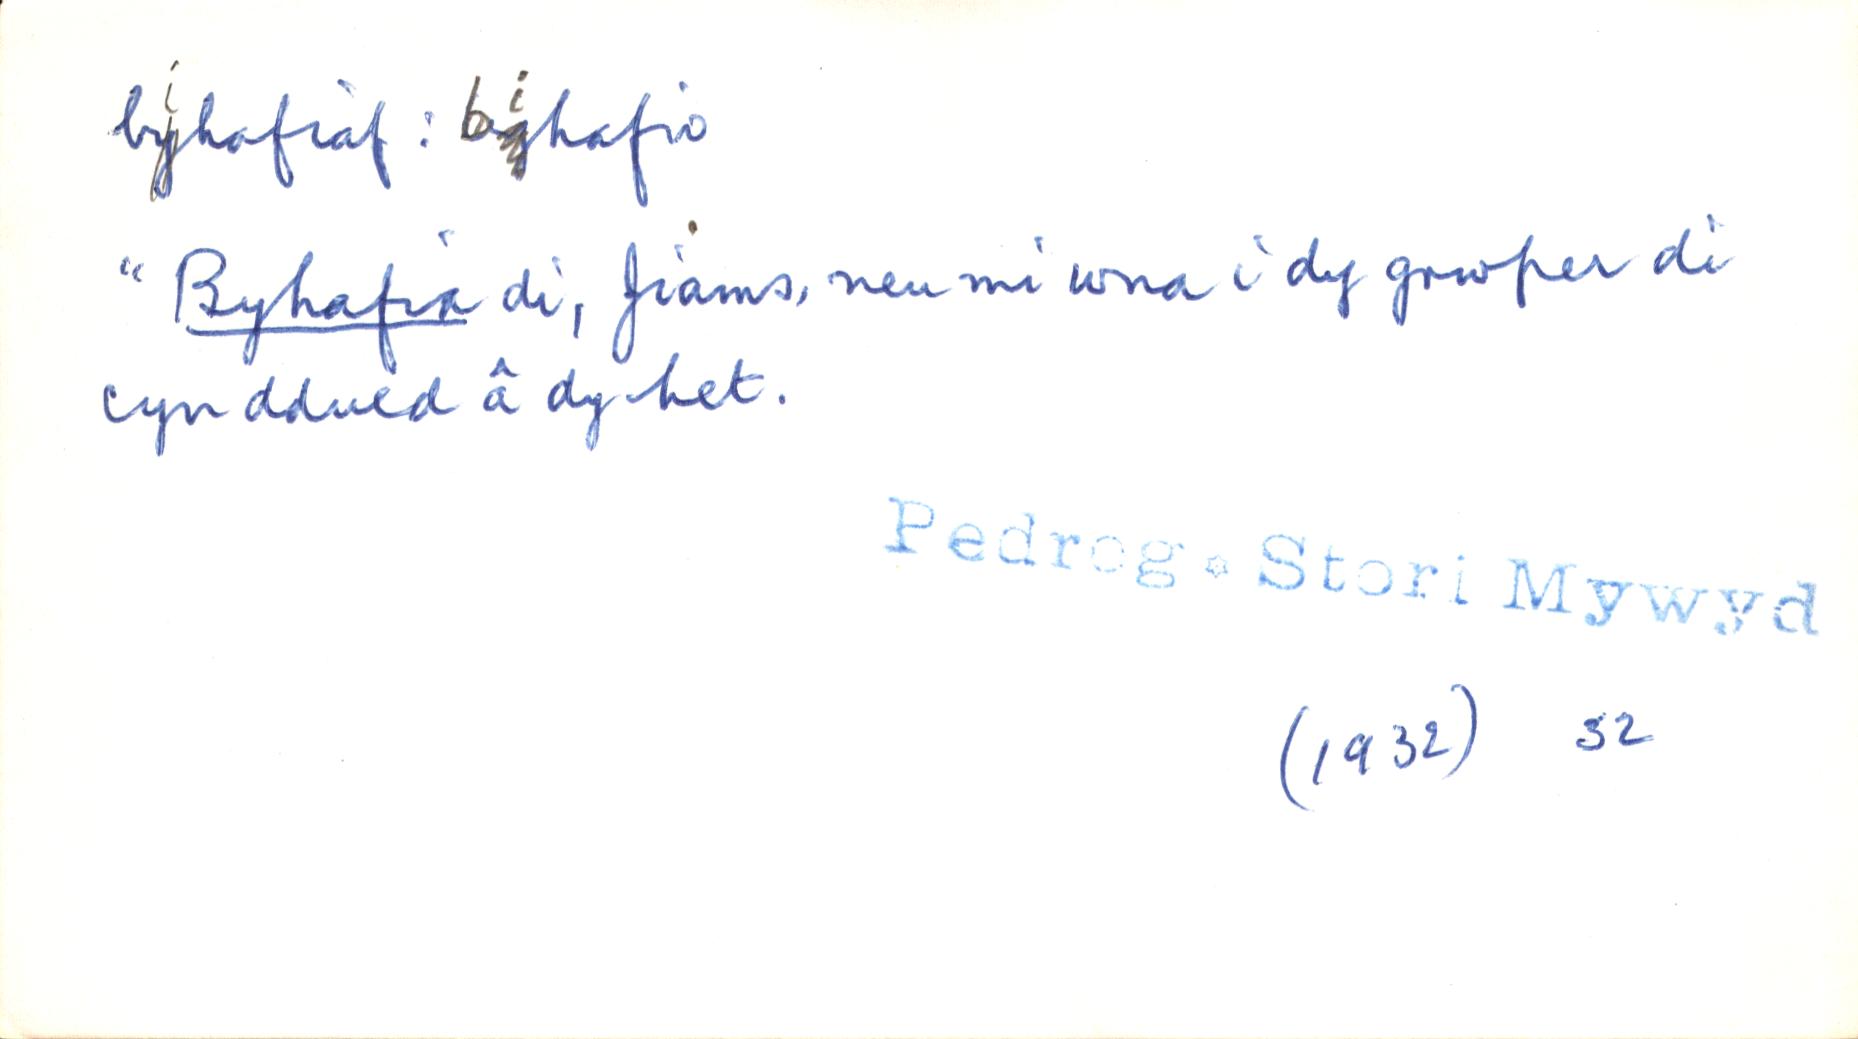 bihafiaf : bihafio
"Byhafia di, Jiams, neu mi wna i dy growper di
cyn ddued â dy het.
Pedrog. Stori Mywyd
(1932) 32